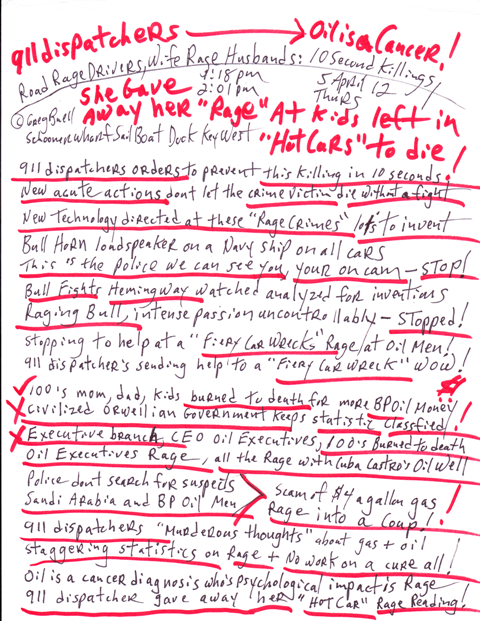 911 dispatchers → Oil is a Cancer!
Road Rage Drivers, Wife Rage Husbands: 10 Second Killings!
1:18 pm
2:01 pm
5 April 12
Thurs
She Gave
Away her "Rage" At Kids left in
© Greg Buell
Schooner Wharf Sail Boat Dock Key West
"Hot Cars" to die!
911 dispatchers orders to prevent this killing in 10 seconds.
New acute actions dont let the crime victim die without a fight
New Technology directed at these "Rage Crimes" lots to invent
Bull Horn loudspeaker on a Navy ship on all cars
This is the Police we can see you, your on cam - STOP!
Bull Fights Hemingway watched analyzed for inventions
Raging Bull, intense passion uncontrollably - Stopped!
Stopping to help at a "Fiery Car Wrecks" Rage at Oil Men!
911 dispatcher's sending help to a "Fiery Car Wreck" WOW!
100's mom, dad, kids burned to death for more BP Oil Money!
Civilized Orwellian Government keeps statistic Classfied!
Executive branch, CEO Oil Executives, 100's Burned to death
Oil Executives Rage, all the Rage with Cuba Castro's Oil Well
Police dont search for suspects
Saudi Arabia and BP Oil Men
Scam of $4 a gallon gas
Rage into a Coup!
911 dispatchers "Murderous thoughts" about gas + oil
staggering statistics on Rage + No work on a cure all!
Oil is a cancer diagnosis who's psychological impact is Rage
911 dispatcher gave away her "Hot Car" Rage Reading!